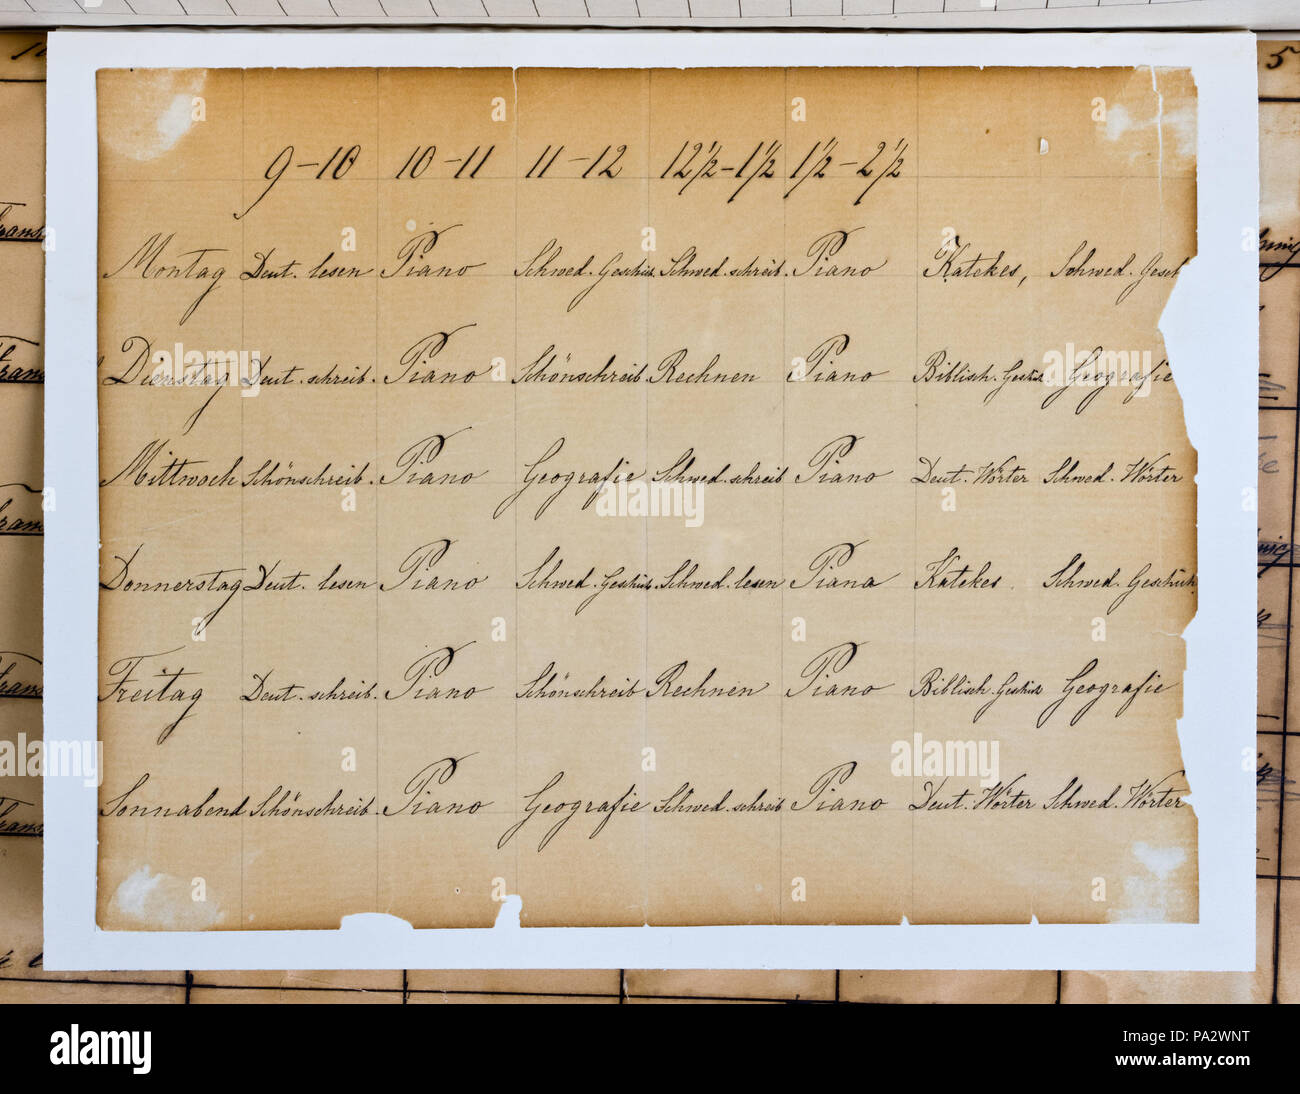 9-10 10-11 11-12 12½-1½ 1½-2½
Montag Deut. lesen Piano Schwed. Geschich. Schwed. schreib. Piano Katekes, Schwed. Gesch
Dienstag Deut. schreib. Piano Schönschreib. Rechnen Piano Biblisch. Gesch. Geografie
Mittwoch Schönschreib. Piano Geografie Schwed. schreib Piano Deut. Wörter Schwed. Wörter
Donnerstag Deut. lesen Piano Schwed. Geschich. Schwed. lesen Piana Katekes. Schwed. Geschich
Freitag Deut. schreib. Piano Schönschreib Rechnen Piano Biblisch. Gesch. Geografie
Sonnabend Schönschreib. Piano Geografie Schwed. schreib Piano Deut. Wörter Schwed. Wörter
5
alamy
Image ID: PA2WNT
www.alamy.com